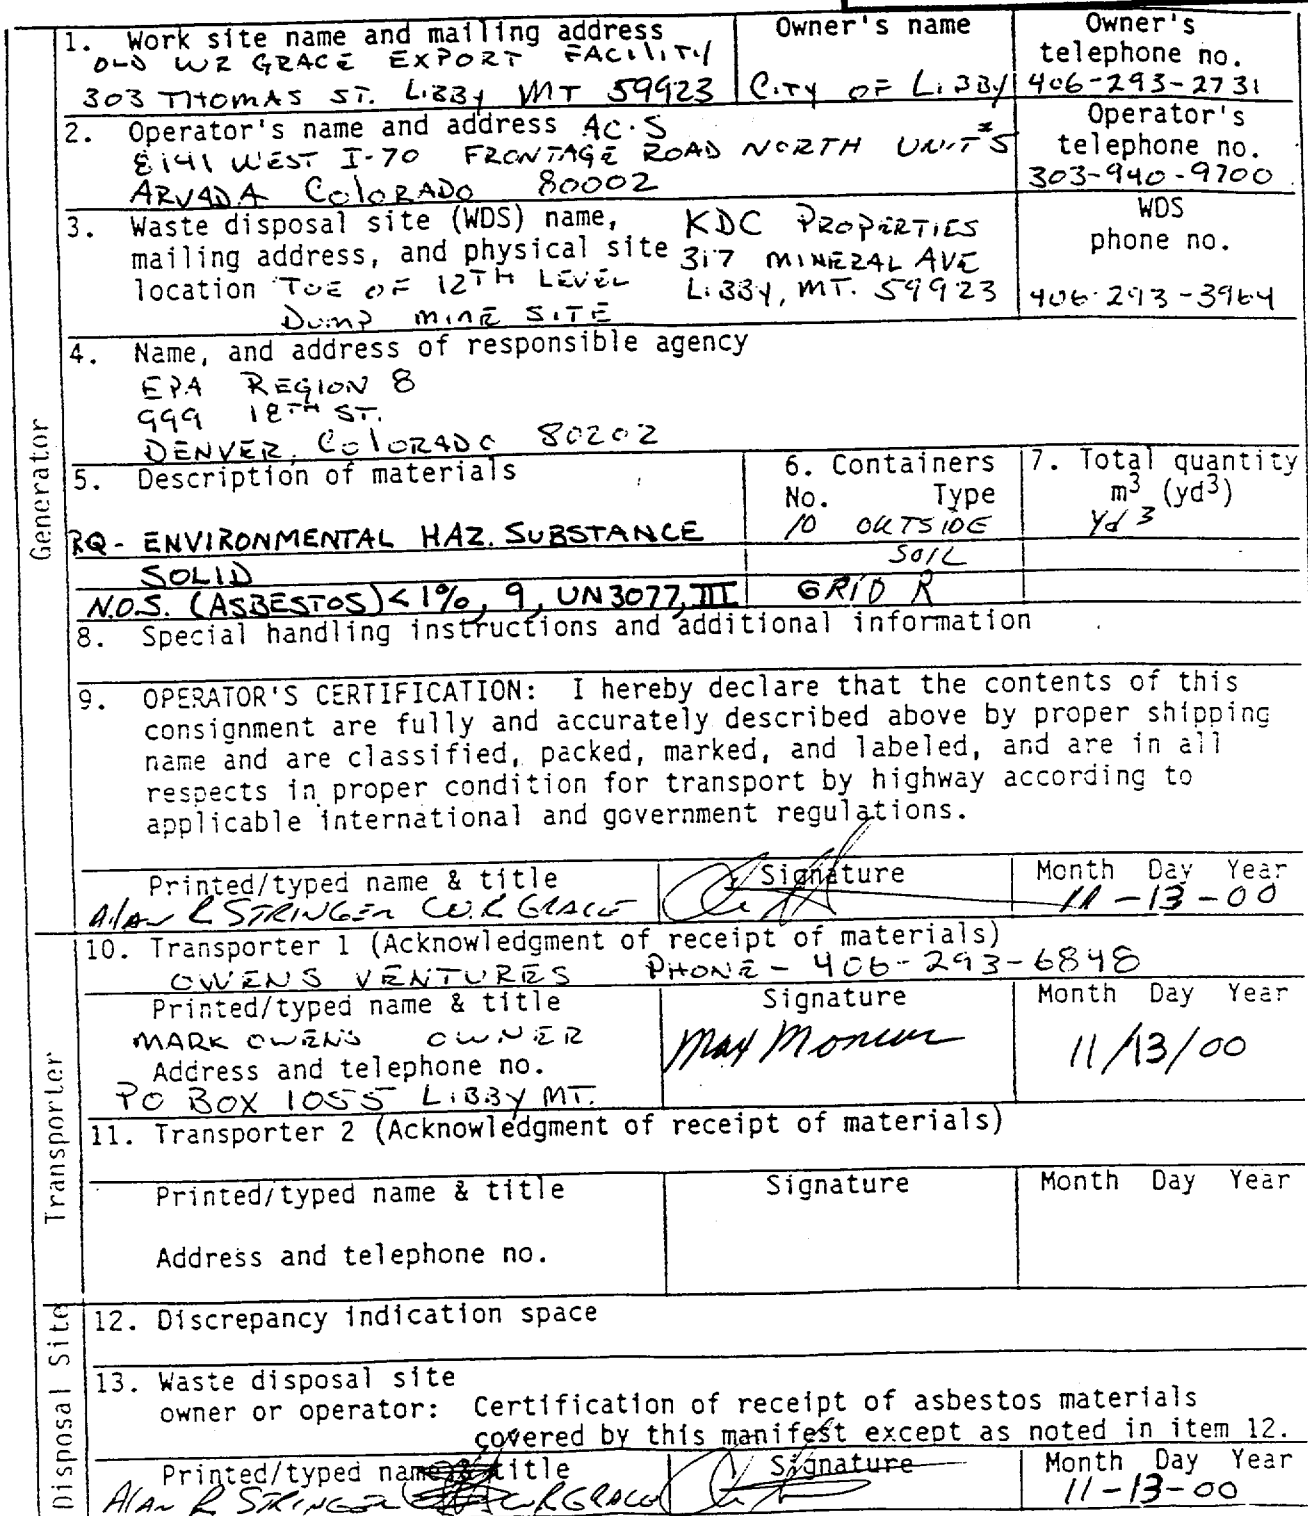 1. Work site name and mailing address
OLD WR GRACE EXPORT FACILITY
303 THOMAS ST. LIBBY MT 59923
Owner's name
CITY OF LIBBY
Owner's
telephone no.
406-293-2731
2. Operator's name and address AC·S
8141 WEST I-70 FRONTAGE ROAD NORTH UNIT #5
ARVADA COLORADO 80002
Operator's
telephone no.
303-940-9700
3. Waste disposal site (WDS) name,
mailing address, and physical site
location TOE OF 12TH LEVEL
DUMP MINE SITE
KDC PROPERTIES
317 MINERAL AVE
LIBBY, MT. 59923
WDS
phone no.
406-293-3964
4. Name, and address of responsible agency
EPA REGION 8
999 18TH ST.
DENVER, COLORADO 80202
Generator
5. Description of materials
RQ - ENVIRONMENTAL HAZ. SUBSTANCE
SOLID
N.O.S. (ASBESTOS) < 1%, 9, UN3077, III
6. Containers
No. Type
10 OUTSIDE
SOIL
GRID R
7. Total quantity
m3 (yd3)
Yd 3
8. Special handling instructions and additional information
9. OPERATOR'S CERTIFICATION: I hereby declare that the contents of this
consignment are fully and accurately described above by proper shipping
name and are classified, packed, marked, and labeled, and are in all
respects in proper condition for transport by highway according to
applicable international and government regulations.
Printed/typed name & title
Alan R STRINGER W.R GRACE
Signature
Month Day Year
11-13-00
Transporter
10. Transporter 1 (Acknowledgment of receipt of materials)
OWENS VENTURES PHONE - 406-293-6848
Printed/typed name & title
MARK OWENS OWNER
Address and telephone no.
PO BOX 1055 LIBBY MT.
Signature
Month Day Year
11/13/00
11. Transporter 2 (Acknowledgment of receipt of materials)
Printed/typed name & title
Signature
Month Day Year
Address and telephone no.
Disposal Site
12. Discrepancy indication space
13. Waste disposal site
owner or operator: Certification of receipt of asbestos materials
covered by this manifest except as noted in item 12.
Printed/typed name & title
Alan R STRINGER WRGRACE
Signature
Month Day Year
11-13-00